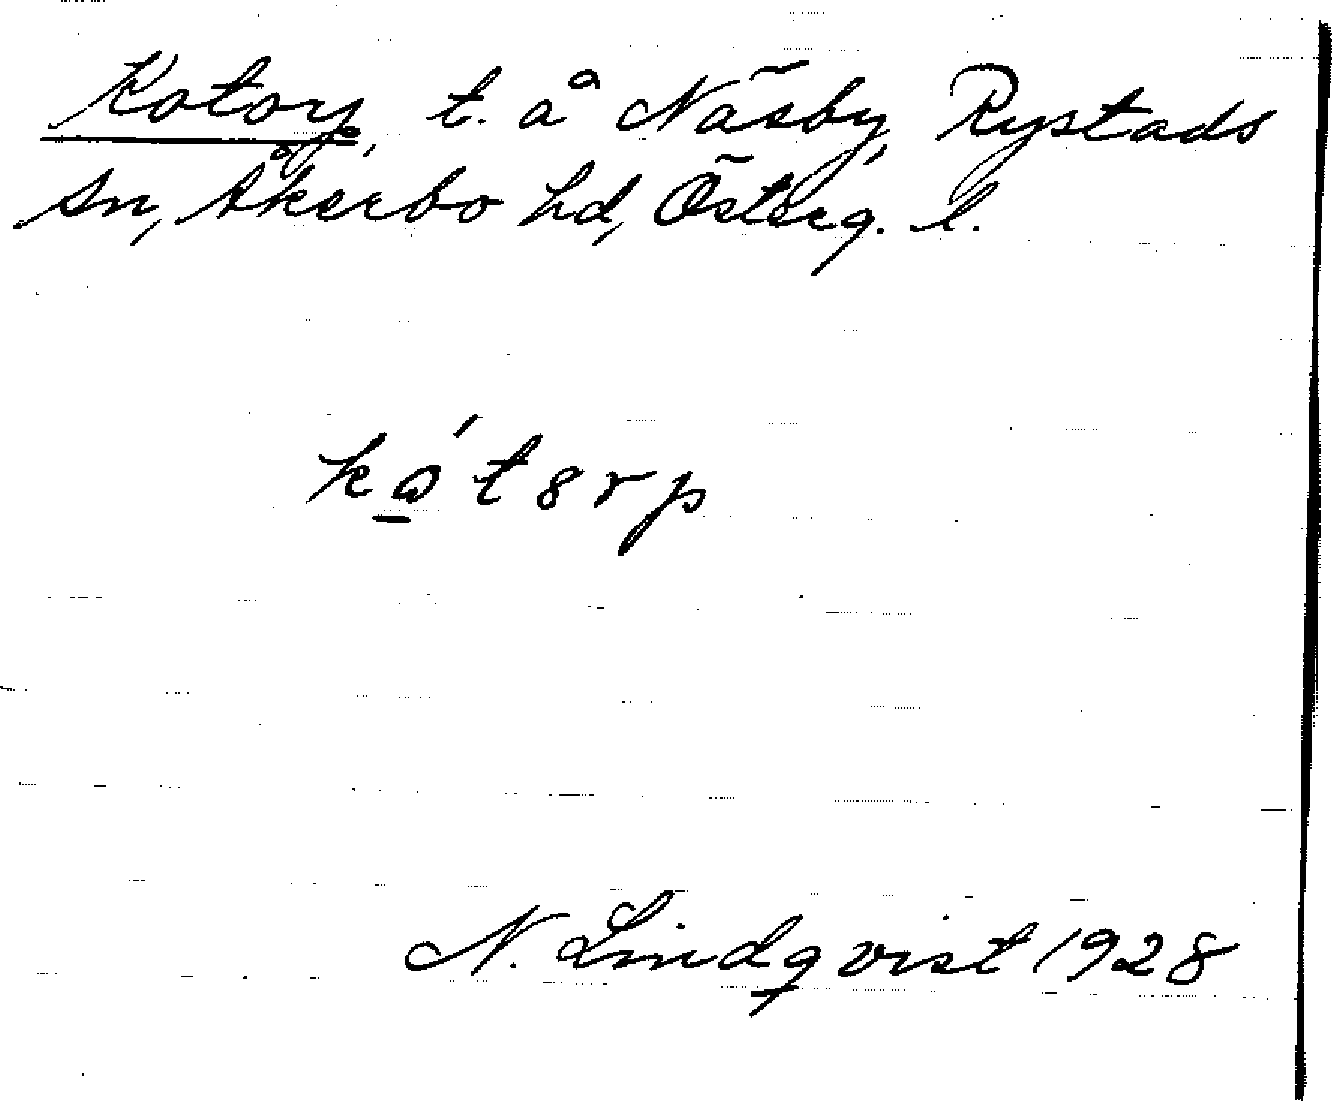 Kotorp, t. å Näsby, Rystads
sn, Åkerbo hd, Österg. l.
N. Lindqvist 1928